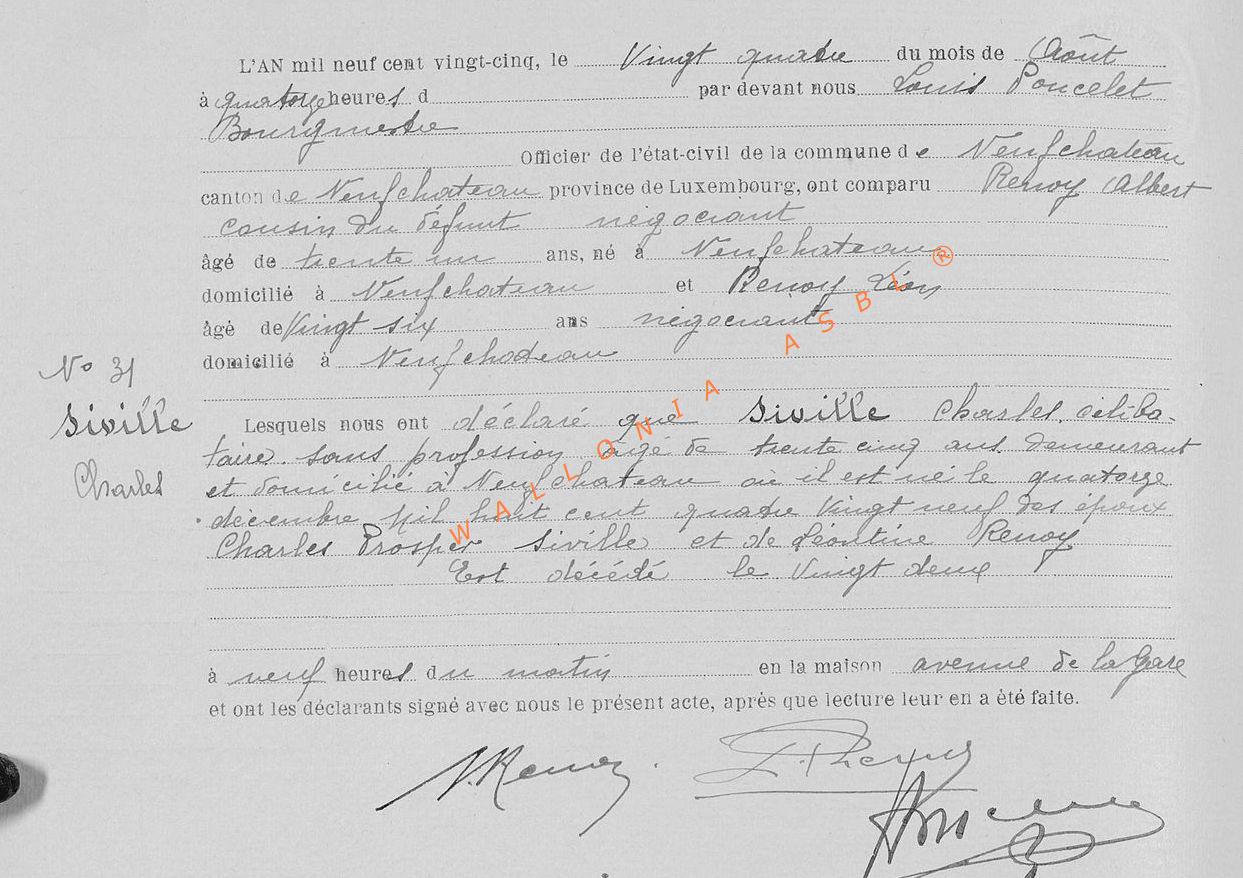 L'AN mil neuf cent vingt-cinq, le Vingt quatre du mois de Août
à quatorze heures d par devant nous Louis Poncelet
Bourgmestre
Officier de l'état-civil de la commune de Neufchateau
canton de Neufchateau province de Luxembourg, ont comparu Renoy Albert
cousin du défunt négociant
âgé de trente un ans, né à Neufchateau
domicilié à Neufchateau et Renoy Léon
âgé de Vingt six ans négociant
domicilié à Neufchateau
No 31
Siville
Charles
Lesquels nous ont déclaré que Siville Charles, céliba-
taire sans profession âgé de trente cinq ans demeurant
et domicilié à Neufchateau où il est né le quatorze
décembre Mil huit cent quatre Vingt neuf des époux
Charles Prosper Siville et de Léontine Renoy
Est décédé le Vingt deux
à neuf heures du matin en la maison avenue de la Gare
et ont les déclarants signé avec nous le présent acte, après que lecture leur en a été faite.
A. Renoy
WALLONIA ASBL ®